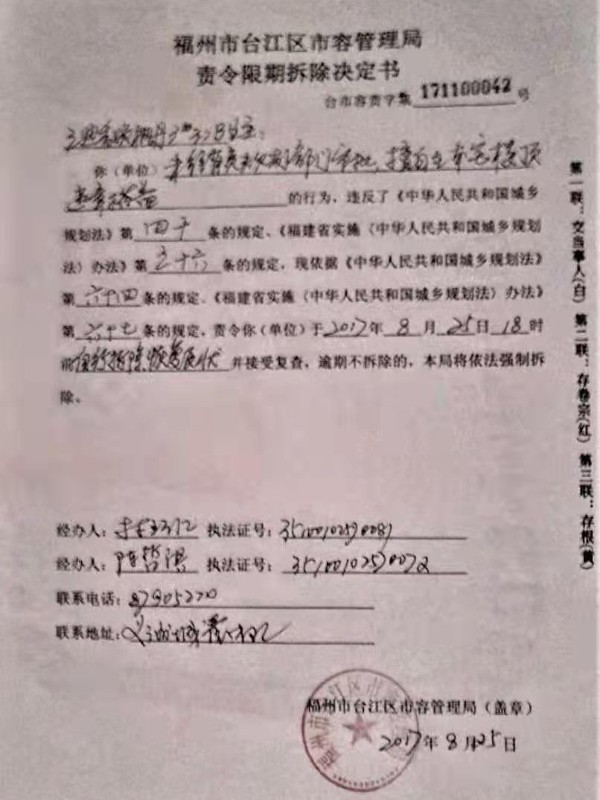 福州市台江区市容管理局
责令限期拆除决定书
台市容责字第 171100042 号
你（单位）未经有关 部门审批，擅自在 楼顶
违章搭盖 的行为，违反了《中华人民共和国城乡
规划法》第 四十 条的规定、《福建省实施〈中华人民共和国城乡规划
法〉办法》第 五十六 条的规定，现依据《中华人民共和国城乡规划法》
第 六十四 条的规定、《福建省实施〈中华人民共和国城乡规划法〉办法》
第 六十七 条的规定，责令你（单位）于 2017 年 8 月 25 日 18 时
前 自行拆除恢复原状 并接受复查，逾期不拆除的，本局将依法强制拆
除。
经办人： 执法证号：
经办人：陈哲滨 执法证号：
联系电话：87905270
联系地址：
福州市台江区市容管理局（盖章）
2017 年 8 月 25 日
第一联：交当事人(白) 第二联：存卷宗(红) 第三联：存根(黄)